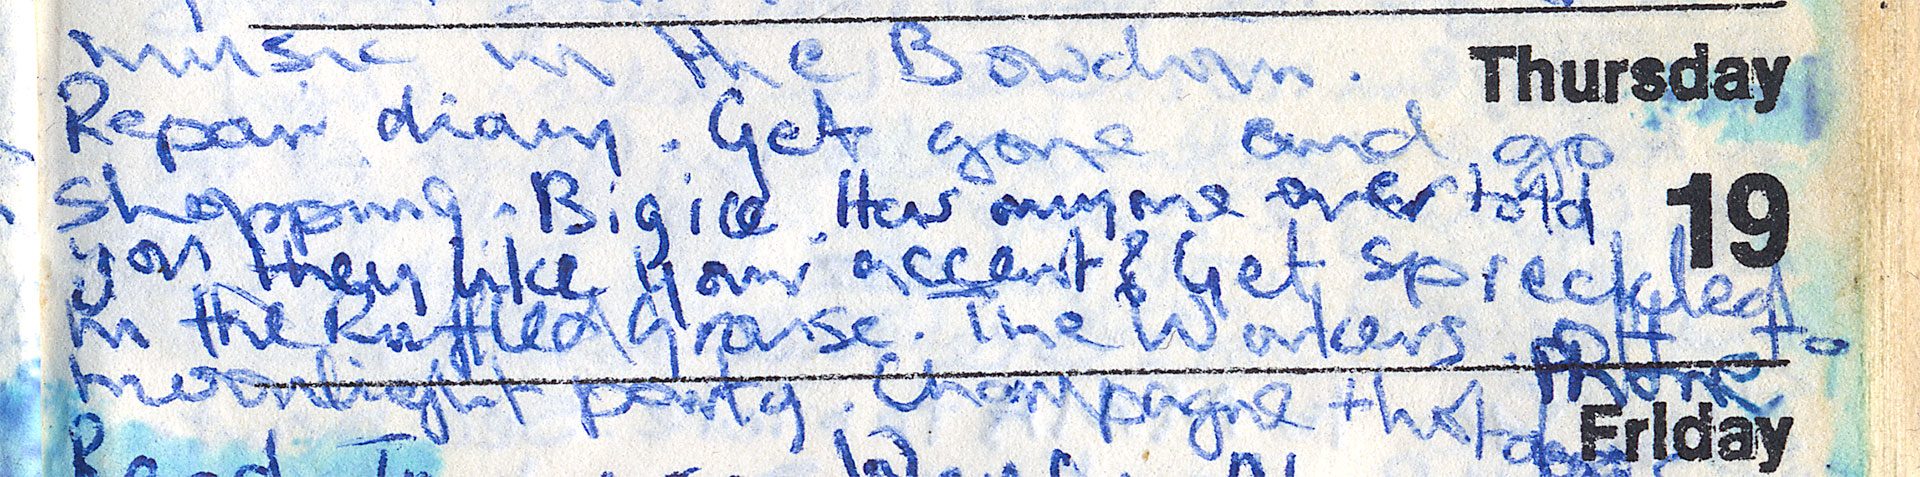 music in the Bowdrin.
Thursday
Repair diary. Get gone and go
shopping. Big ice. Has anyone ever told
19
you they like your accent? Get spreckled
in the Ruffled Grouse. The Workers. off to
moonlight party. Champagne that
Phone
Friday
Read